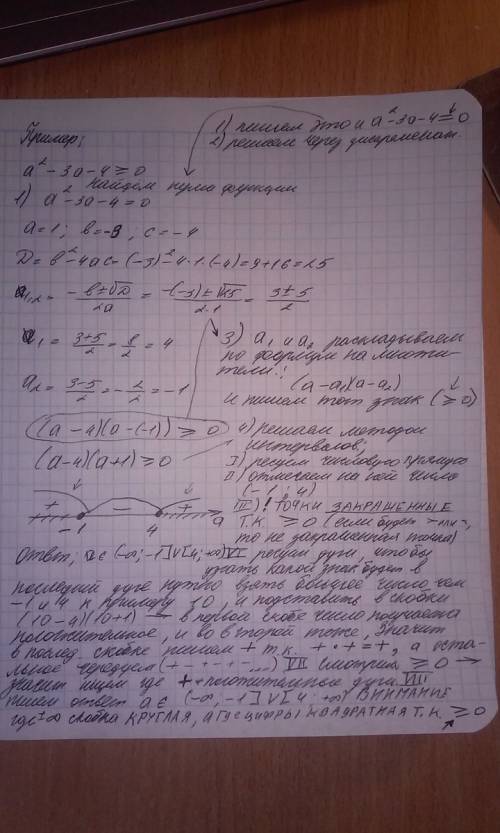 Пример:
1) пишем это и a²-3a-4=0
2) решаем через дискременант.
a²-3a-4≥0
найдём нули функции
1) a²-3a-4=0
a=1; в=-3; c=-4
D=в²-4ac=(-3)²-4·1·(-4)=9+16=25
a₁,₂ = (-в±√D)/2a = (-(-3)±√25)/2·1 = (3±5)/2
a₁ = (3+5)/2 = 8/2 = 4
a₂ = (3-5)/2 = -2/2 = -1
3) a₁ и a₂ раскладываем
по формуле на множи-
тели:
(a-a₁)(a-a₂)
и пишем тот знак (≥0)
(a-4)(a-(-1))≥0
(a-4)(a+1)≥0
4) решаем методом
интервалов;
I) рисуем числовую прямую
II) отмечаем на ней число
(-1 и 4)
III)! точки ЗАКРАШЕННЫЕ
т.к. ≥0 (если будет > или <,
то не закрашенная точка)
+ - +
-1 4 a
Ответ: a∈(-∞;-1]∨[4;+∞)
VI рисуем дуги, чтобы
узнать какой знак будет в
последней дуге нужно взять большее число чем
-1 и 4 к примеру 10, и подставить в скобки
(10-4)(10+1) – в первой скобе число получается
положительное, и во второй тоже, значит
в послед. скобке пишем + т.к. +·+=+, а оста-
льное чередуем (+-+-+-...) VII смотрим ≥0 →
значит ищем где + положительные дуги. VIII
пишем ответ a∈(-∞,-1]∨[4;∞) ВНИМАНИЕ
где ±∞ скобка КРУГЛАЯ, а где цифры КВАДРАТНАЯ т.к. ≥0